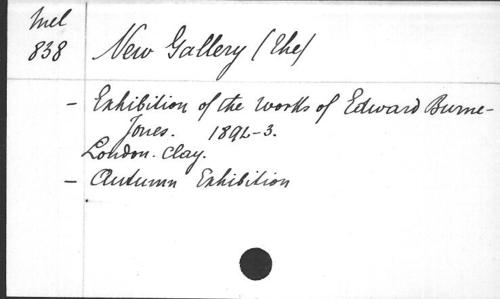 Mel
838
New Gallery (The)
- Exhibition of the works of Edward Burne-
Jones. 1892-3.
London. Clay.
- Autumn Exhibition